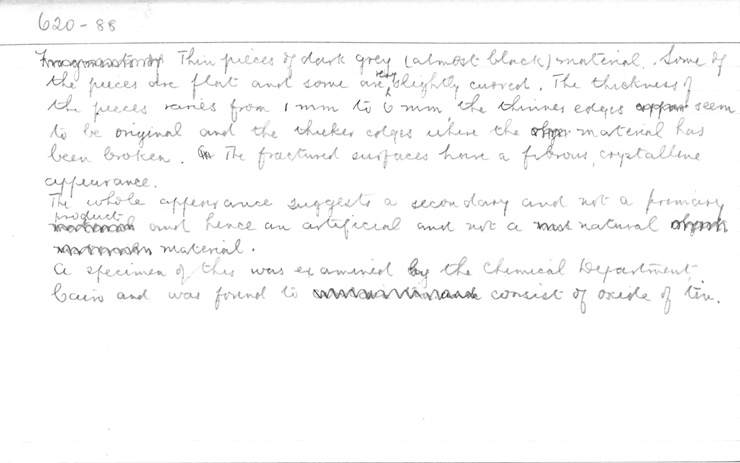 620-88
Thin pieces of dark grey (almost black) material. Some of
the pieces are flat and some are very slightly curved. The thickness of
the pieces varies from 1 mm to 6 mm, the thinner edges seem
to be original and the thicker edges where the material has
been broken. The fractured surfaces have a fibrous, crystalline
appearance.
The whole appearance suggests a secondary and not a primary
product and hence an artificial and not a natural
material.
A specimen of this was examined by the Chemical Department,
Cairo and was found to consist of oxide of tin.